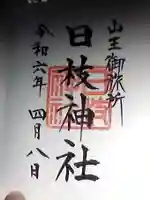 山王御旅所
日枝神社
令和六年 四月八日